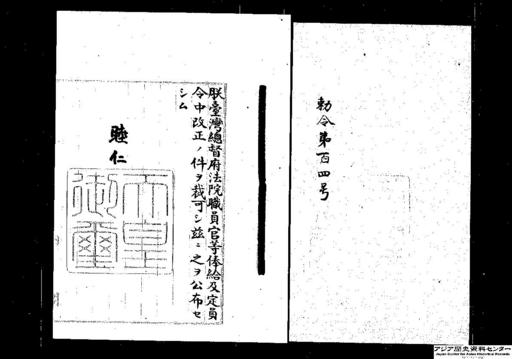 勅令第百四号
朕臺灣總督府法院職員官等俸給及定員
令中改正ノ件ヲ裁可シ茲ニ之ヲ公布セ
シム
睦仁
天皇
御璽
アジア歴史資料センター
Japan Center for Asian Historical Records